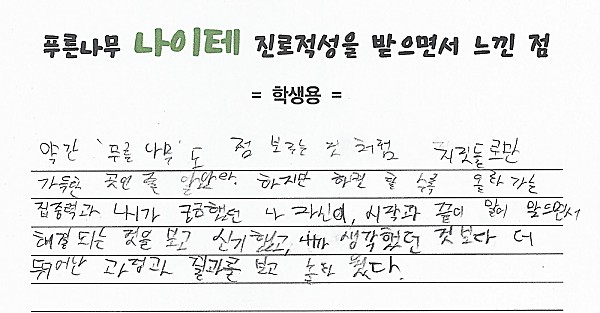 푸른나무 나이테 진로적성을 받으면서 느낀 점
= 학생용 =
약간 '푸른 나무'도 점 보는 것 처럼 지릿들로만
가득한 곳인 줄 알았다. 하지만 하면 할 수록 올라가는
집중력과 내가 궁금했던 나 자신이, 시작과 끝이 많이 맞으면서
해결 되는 것을 보고 신기했고, 내가 생각했던 것보다 더
뛰어난 과정과 결과를 보고 놀라 웠다.